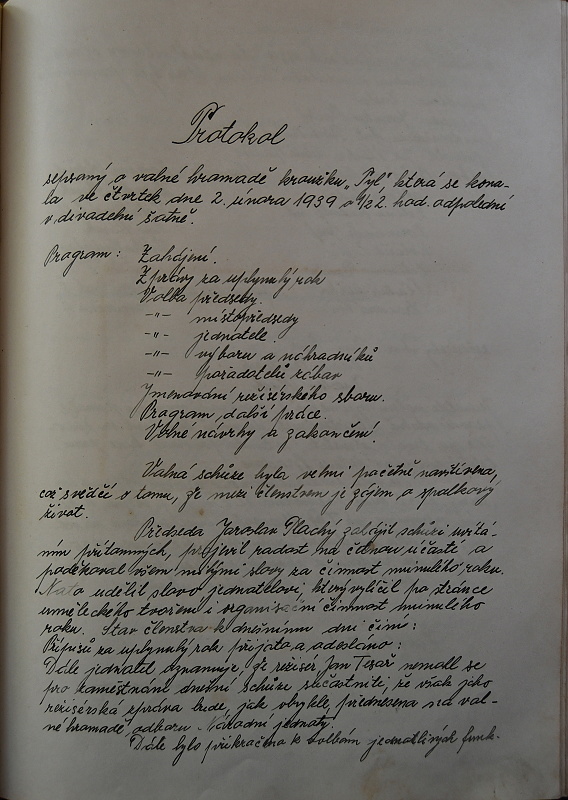 Protokol
sepsaný o valné hromadě kroužku „Tyl", která se kona-
la ve čtvrtek dne 2. února 1939 o 1/2 2. hod. odpolední
v divadelní šatně.
Program: Zahájení.
Zprávy za uplynulý rok
Volba předsedy.
-"- místopředsedy
-"- jednatele
-"- výboru a náhradníků
-"- pořadatelů zábav
Jmenování režisérského sboru.
Program, další práce.
Volné návrhy a zakončení.
Valná schůze byla velmi početně navštívena,
což svědčí o tomu, že mezi členstvem je zájem o spolkový
život.
Předseda Jaroslav Plachý zahájil schůzi uvítá-
ním přítomných, projevil radost na četnou účastí a
poděkoval všem milými slovy za činnost minulého roku.
Nato udělil slovo jednatelovi, který vylíčil po stránce
uměleckého tvoření i organisační činnost minulého
roku. Stav členstva k dnešnímu dni činí:
Přípisů za uplynulý rok přijato a odesláno:
Dále jednatel oznamuje, že režisér Jan Tesař nemohl se
pro zaměstnání dnešní schůze súčastniti, že však jeho
režisérská zpráva bude, jak obvykle, přednesena na val-
né hromadě odboru Národní jednoty.
Dále bylo přikračeno k volbám jednotlivých funk-